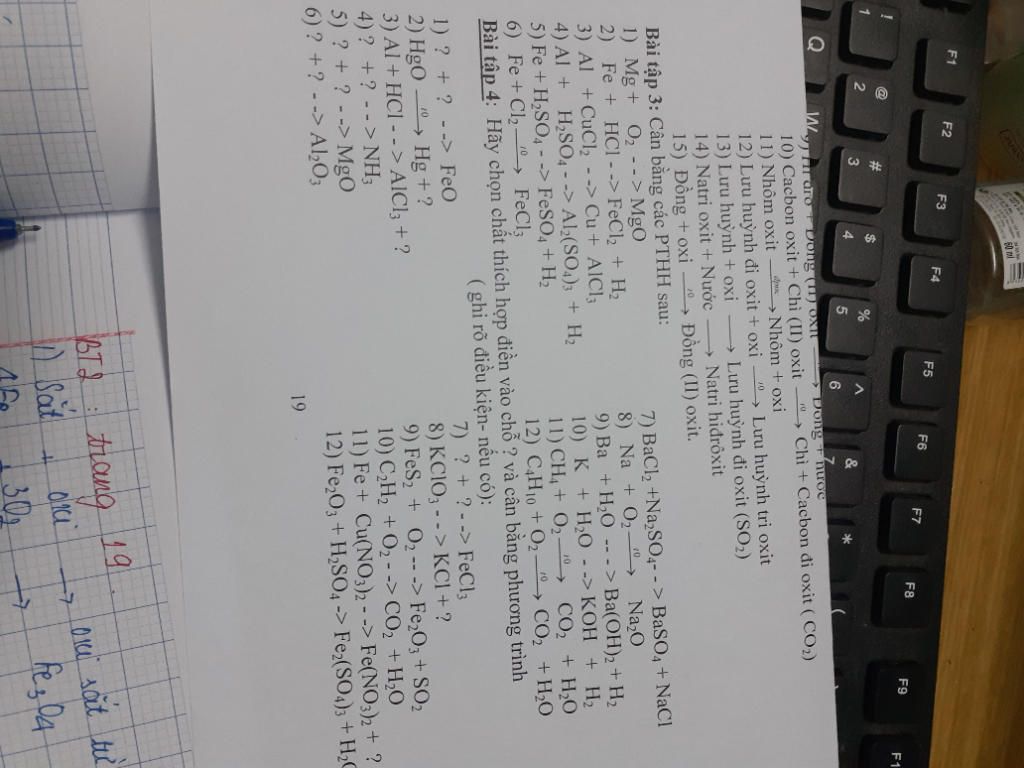 9) Hi đrô + Đồng (II) oxit ⟶ Đồng + nước
10) Cacbon oxit + Chì (II) oxit —t⁰→ Chì + Cacbon đi oxit ( CO₂)
11) Nhôm oxit —đpnc→ Nhôm + oxi
12) Lưu huỳnh đi oxit + oxi —t⁰→ Lưu huỳnh tri oxit
13) Lưu huỳnh + oxi ⟶ Lưu huỳnh đi oxit (SO₂)
14) Natri oxit + Nước ⟶ Natri hiđrôxit
15) Đồng + oxi —t⁰→ Đồng (II) oxit.
Bài tập 3: Cân bằng các PTHH sau:
1) Mg + O₂ --> MgO
2) Fe + HCl --> FeCl₂ + H₂
3) Al + CuCl₂ --> Cu + AlCl₃
4) Al + H₂SO₄ --> Al₂(SO₄)₃ + H₂
5) Fe + H₂SO₄ --> FeSO₄ + H₂
6) Fe + Cl₂ —t⁰→ FeCl₃
7) BaCl₂ +Na₂SO₄--> BaSO₄ + NaCl
8) Na + O₂ —t⁰→ Na₂O
9) Ba + H₂O --> Ba(OH)₂ + H₂
10) K + H₂O --> KOH + H₂
11) CH₄ + O₂ —t⁰→ CO₂ + H₂O
12) C₄H₁₀ + O₂ —t⁰→ CO₂ + H₂O
Bài tập 4: Hãy chọn chất thích hợp điền vào chỗ ? và cân bằng phương trình
( ghi rõ điều kiện- nếu có):
1) ? + ? --> FeO
2) HgO —t⁰→ Hg + ?
3) Al + HCl --> AlCl₃ + ?
4) ? + ? --> NH₃
5) ? + ? --> MgO
6) ? + ? --> Al₂O₃
7) ? + ? --> FeCl₃
8) KClO₃ --> KCl + ?
9) FeS₂ + O₂ ---> Fe₂O₃ + SO₂
10) C₂H₂ + O₂ --> CO₂ + H₂O
11) Fe + Cu(NO₃)₂ --> Fe(NO₃)₂ + ?
12) Fe₂O₃ + H₂SO₄ -> Fe₂(SO₄)₃ + H₂O
19
BT2 : trang 19
1) Sắt + oxi ⟶ oxi sắt từ
3O₂ ⟶ Fe₃O₄
F1
F2
F3
F4
F5
F6
F7
F8
F9
! 1
@ 2
# 3
$ 4
% 5
^ 6
& 7
*
(
Q
W
60 ml